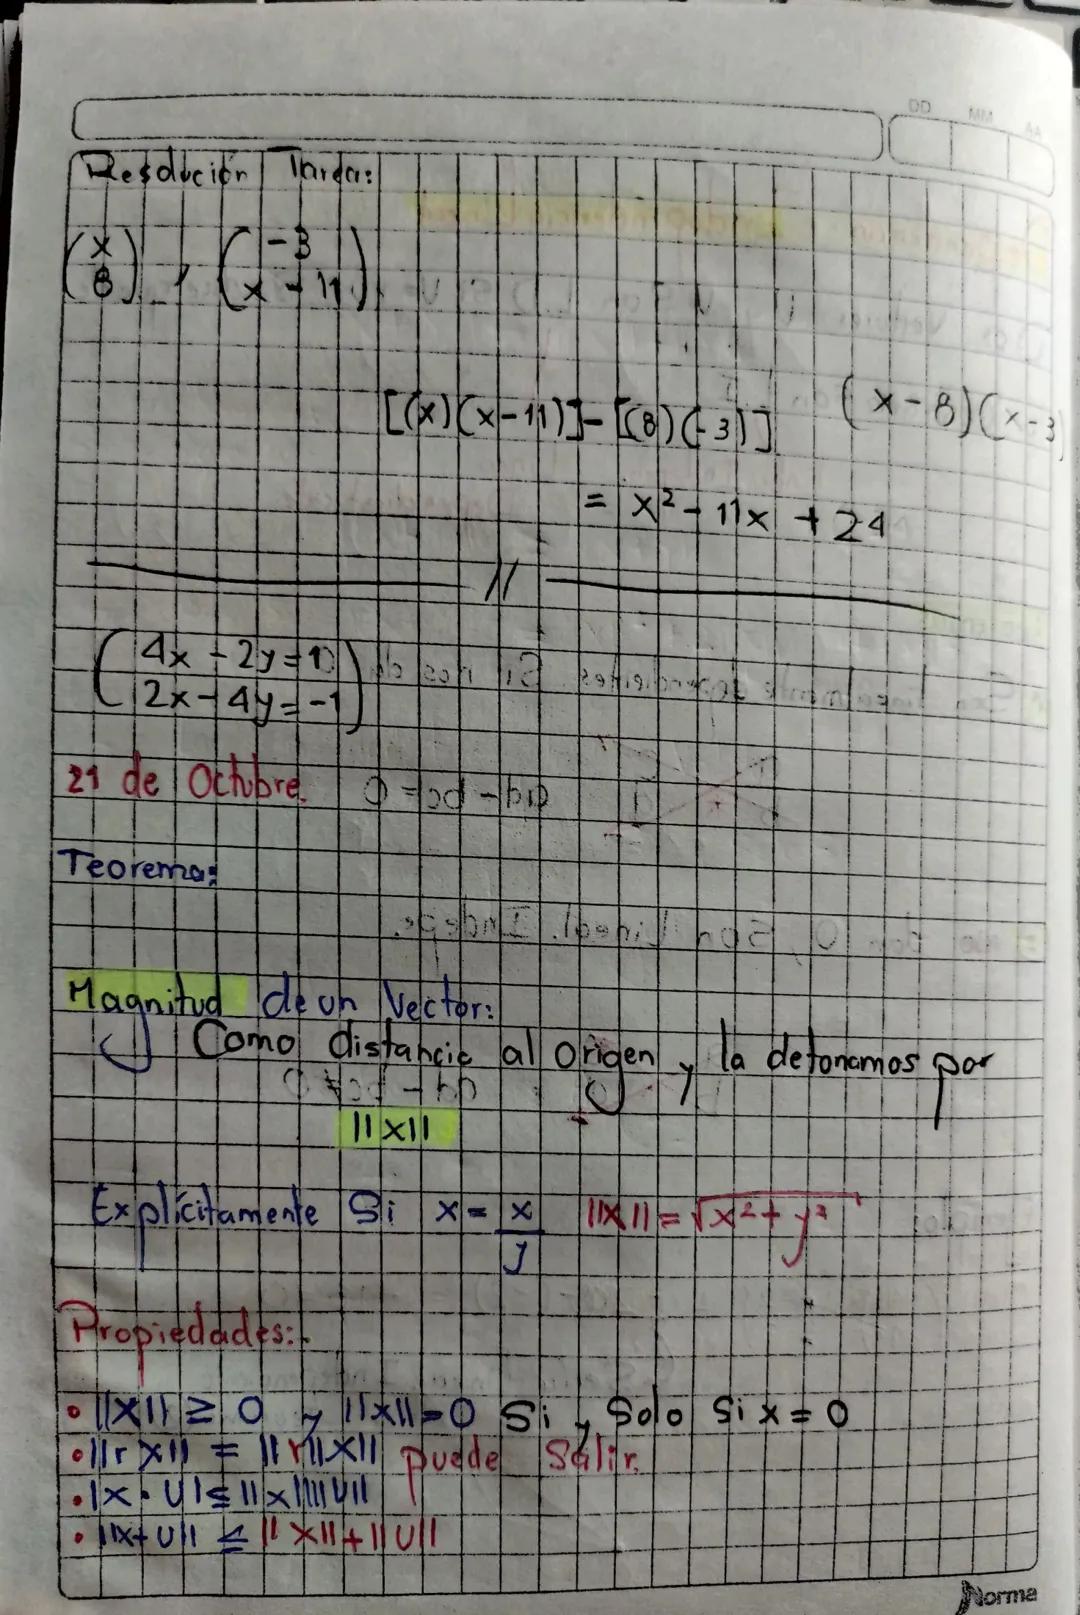 DD MM AA
Resolución Tarea:
(x / 8) , (-3 / x - 11)
[(x)(x-11)]-[(8)(-3)] (x-8)(x-3
= x² - 11x + 24
//
4x - 2y = 10
2x - 4y = -1
21 de Octubre.
Teorema:
Magnitud de un Vector:
Como distancia al Origen y la detonamos por
||x||
Explícitamente Si x = x/y ||x|| = √x² + y²
Propiedades:
• ||x|| ≥ 0 y ||x|| = 0 Si y Solo Si x = 0
• ||r x|| = || r||x|| puede Salir.
• |x · U| ≤ ||x||||U||
• ||x + U|| ≤ ||x|| + ||U||
Norma